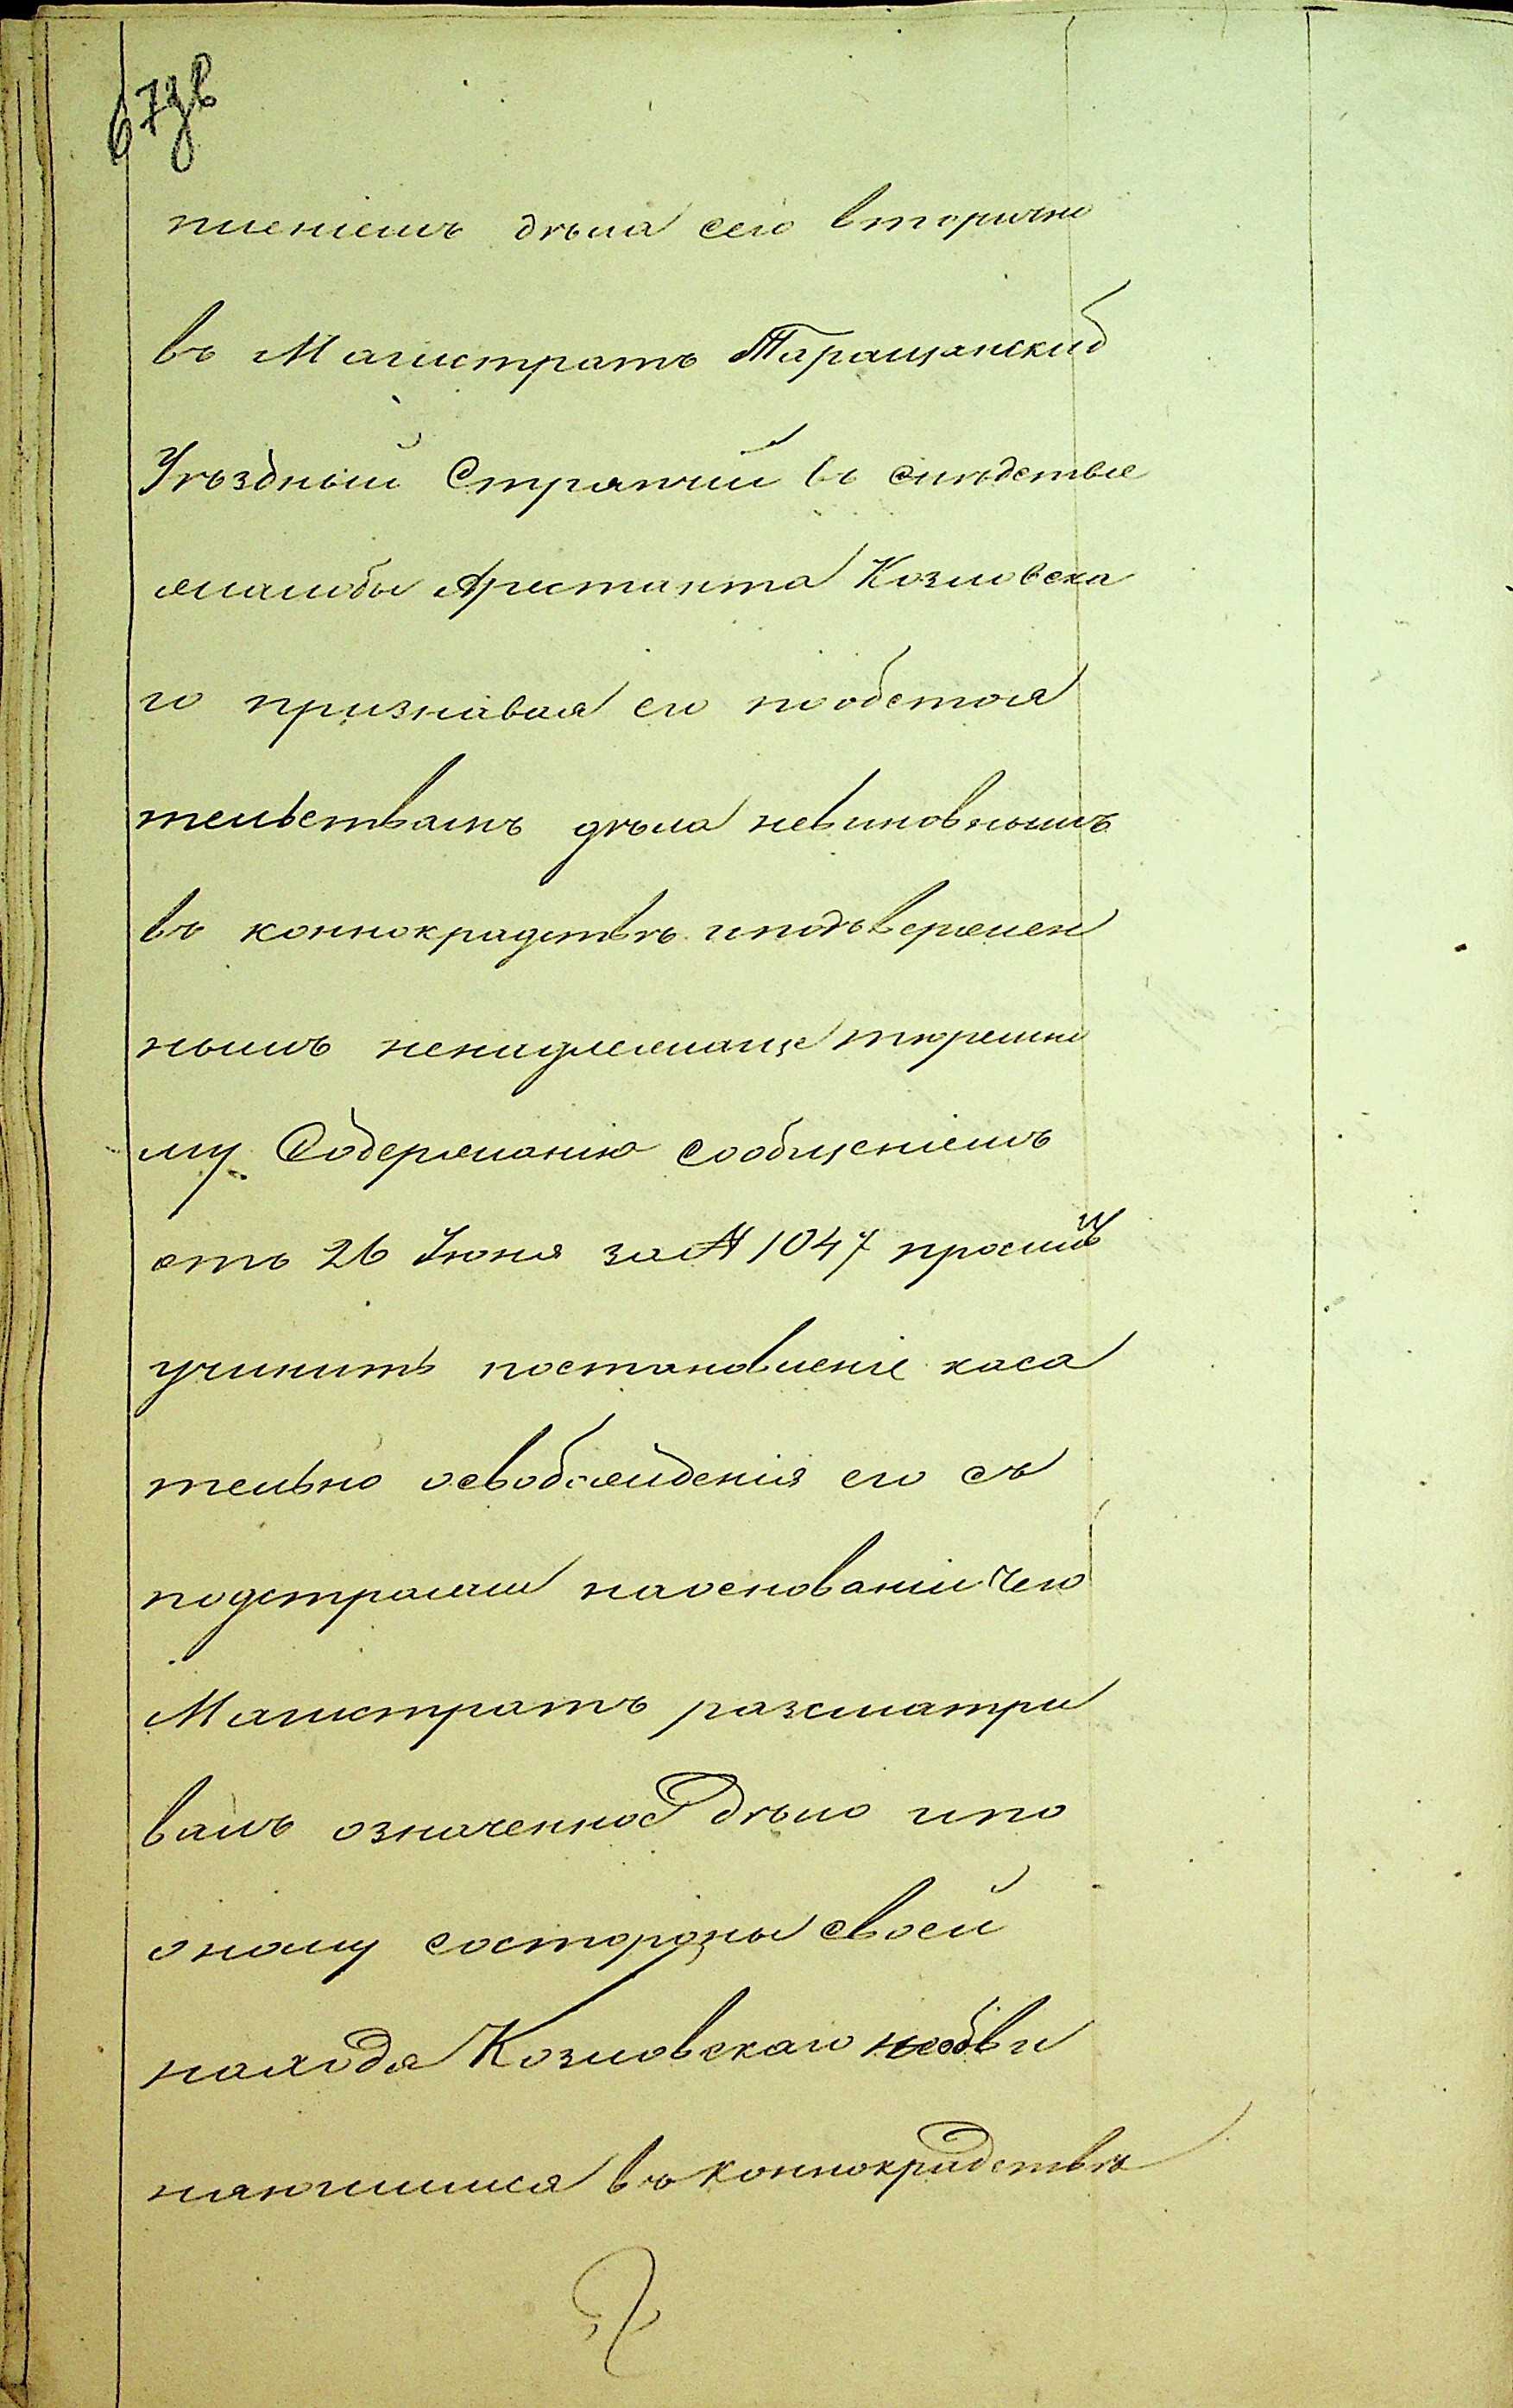 67зв
пленіемъ дѣла сего вторично
въ Магистратъ Таращанский
Уѣздный Стряпчий въ слѣдствие
жалобы Арестанта Козловска
го признавая его пообстоя
тельствамъ дѣла невиновнымъ
въ коннокрадствѣ иподъвержен
нымъ ненадлежаще тюремно
му Содержанію сообщеніемъ
отъ 26 Июня за № 1047 просилъ
учинить постановленіе каса
тельно освобождения его съ
подстражи наоснованіи чего
Магистратъ разсматри
валъ означенное дѣло ипо
оному состороны своей
находя Козловскаго необви
няючимися въ коннокрадствѣ